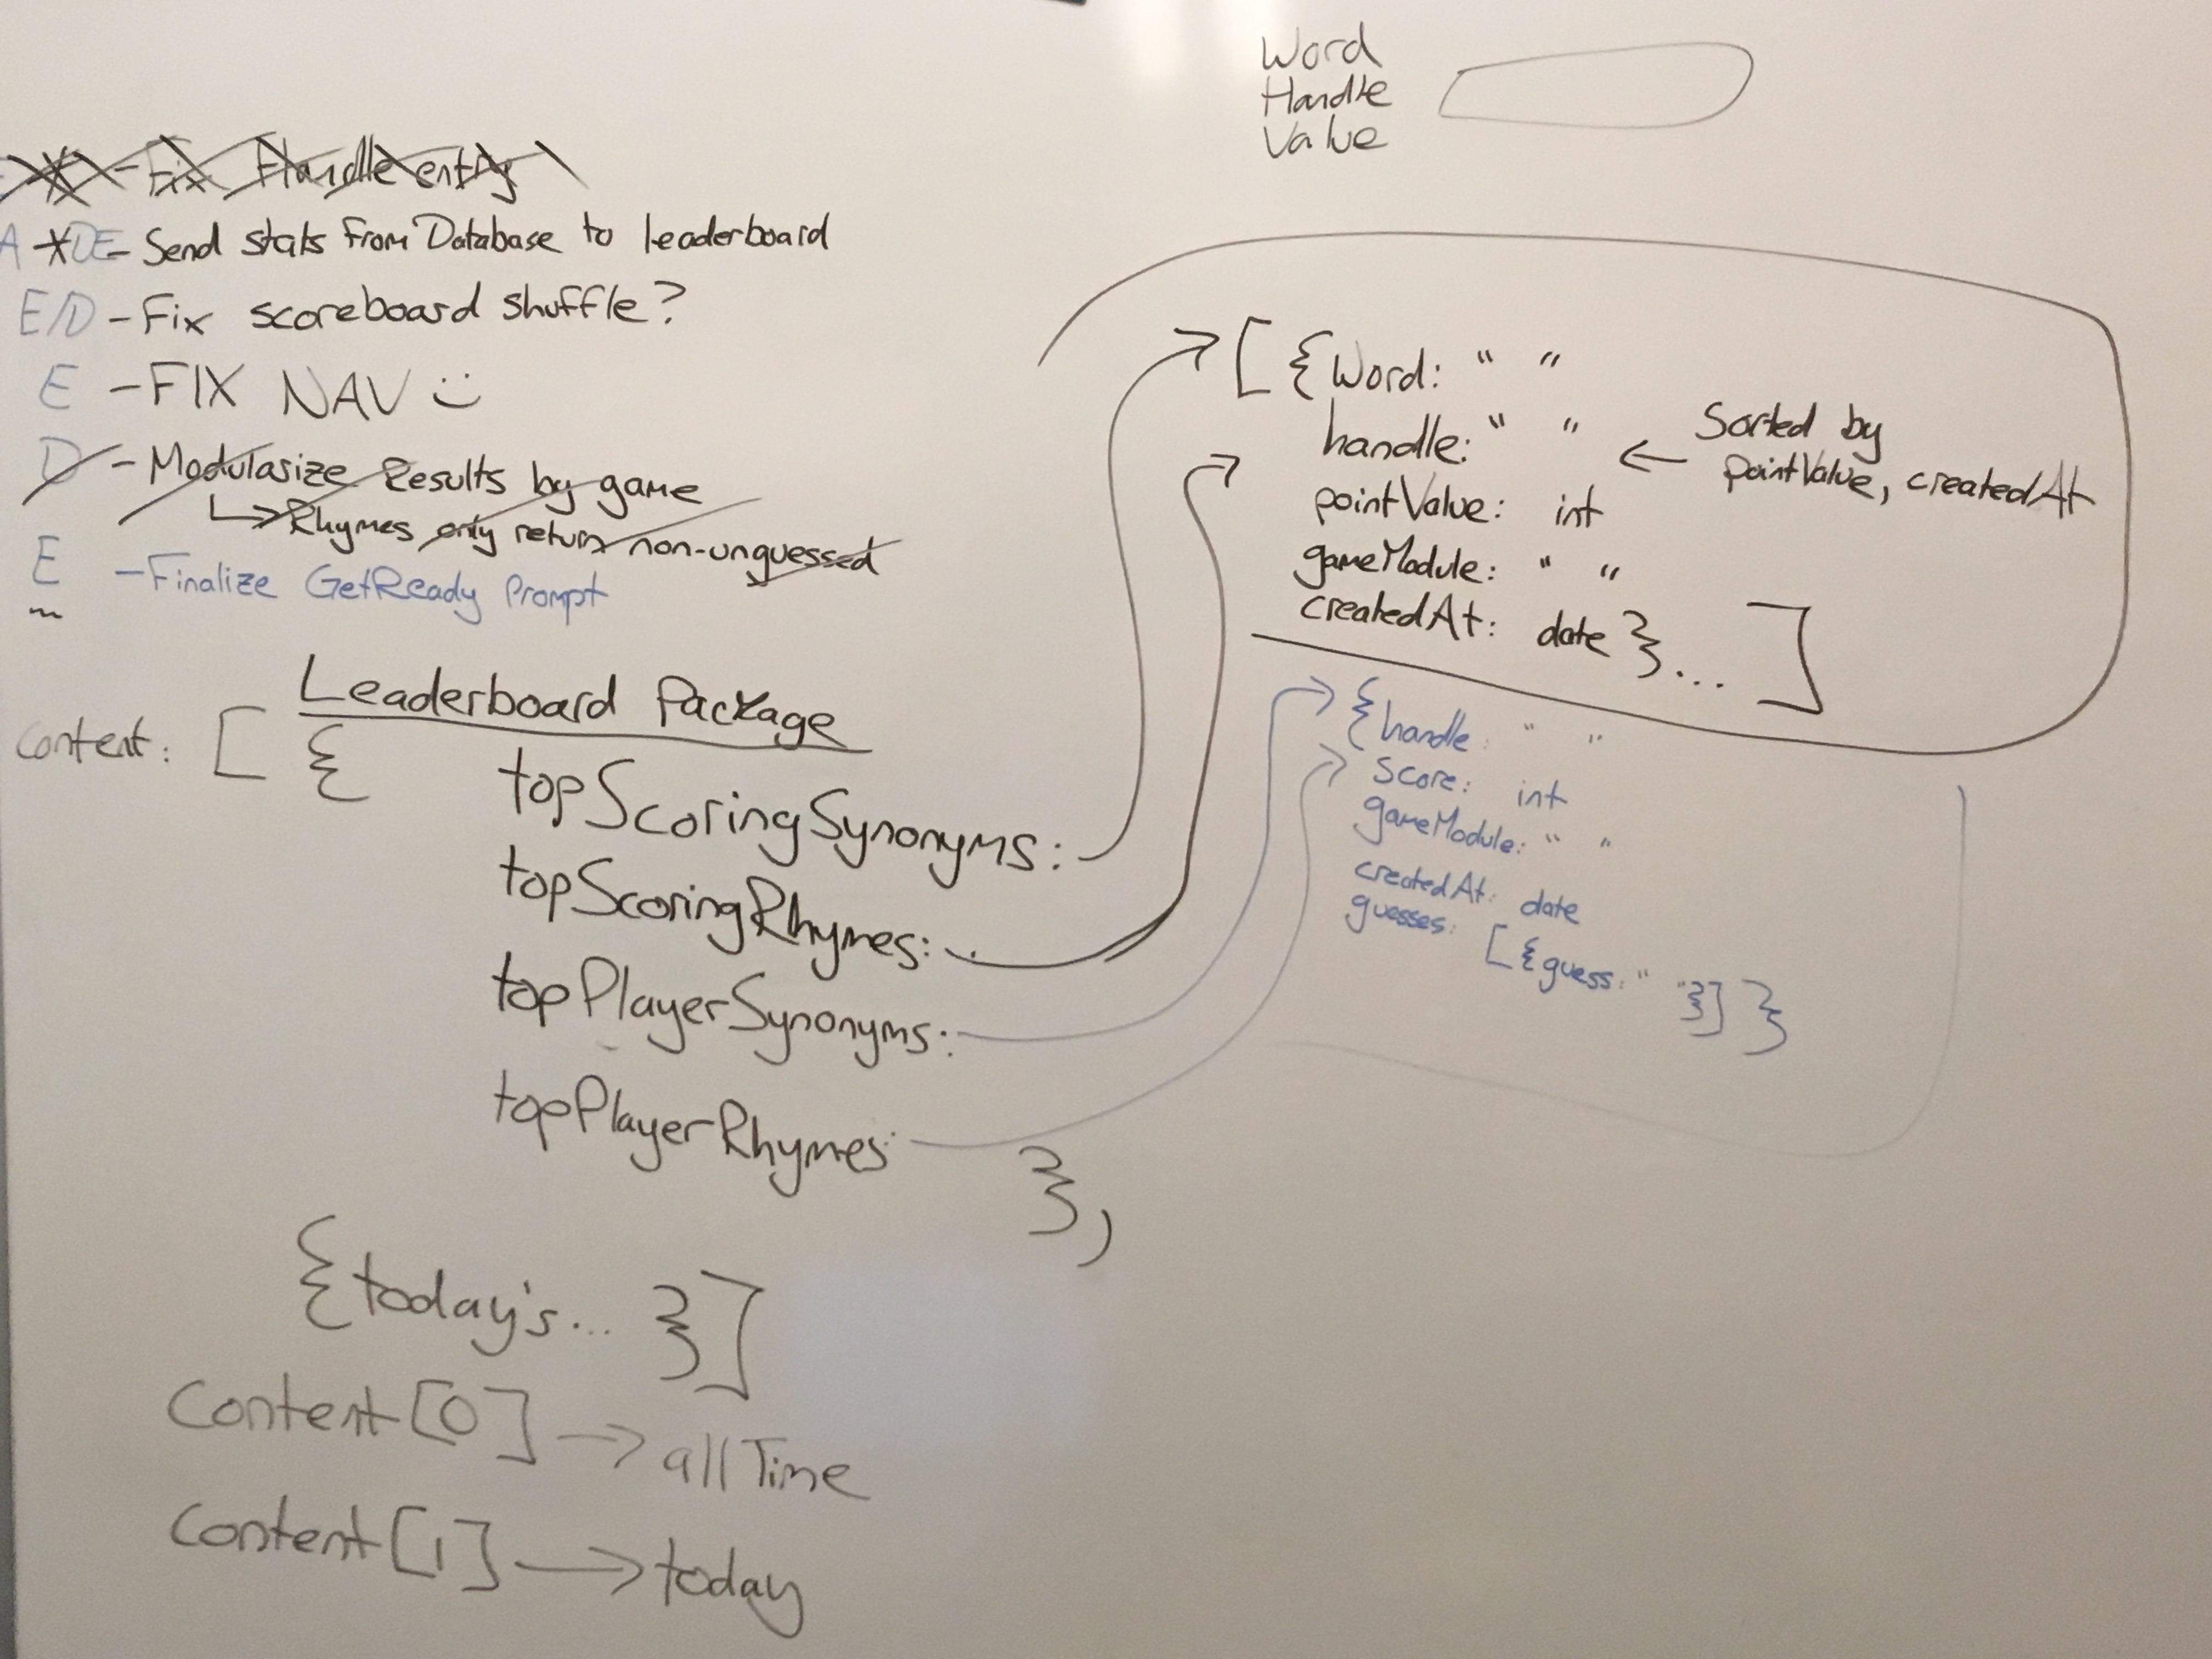 Word
Handle
Value
- Fix Handle entry
A *DE- Send stats from Database to leaderboard
E/D - Fix scoreboard shuffle?
E - FIX NAV :)
D - Modularize Results by game
↳ Rhymes only return non-unguessed
E - Finalize GetReady Prompt
~
Leaderboard Package
content: [ {
topScoringSynonyms:
topScoringRhymes:
topPlayerSynonyms:
topPlayerRhymes:
},
{today's... }]
Content[0] → allTime
Content[1] → today
[ {Word: " "
handle: " "
pointValue: int
gameModule: " "
createdAt: date }... ]
← Sorted by
pointValue, createdAt
{handle: " "
Score: int
gameModule: " "
createdAt: date
guesses: [{guess: " "}] }